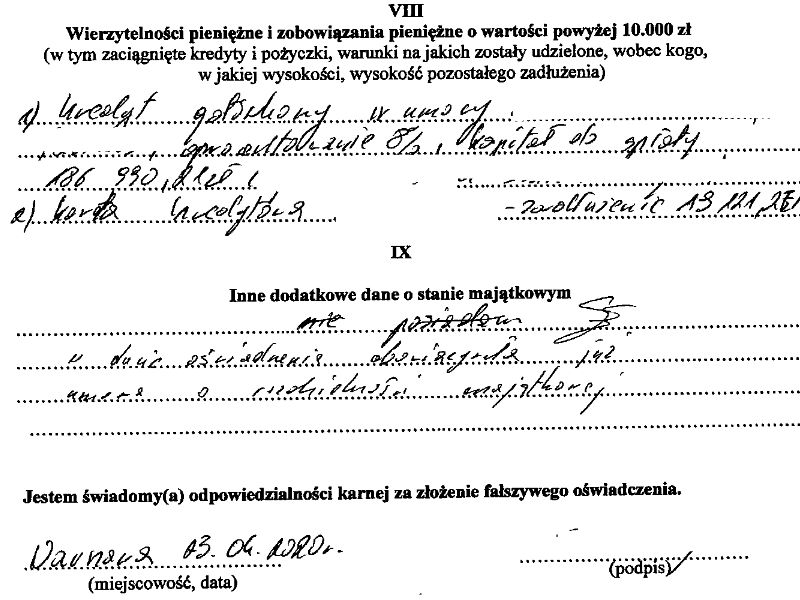 VIII
Wierzytelności pieniężne i zobowiązania pieniężne o wartości powyżej 10.000 zł
(w tym zaciągnięte kredyty i pożyczki, warunki na jakich zostały udzielone, wobec kogo,
w jakiej wysokości, wysokość pozostałego zadłużenia)
1) kredyt gotówkowy umowy
oprocentowanie 8%, kapitał do spłaty
186 990,
2) karta kredytowa - zadłużenie 13 121,
IX
Inne dodatkowe dane o stanie majątkowym
nie posiadam
w dniu oświadczenia obowiązywała już
umowa o rozdzielności majątkowej
Jestem świadomy(a) odpowiedzialności karnej za złożenie fałszywego oświadczenia.
Warszawa 03.04.2020r.
(miejscowość, data) (podpis)